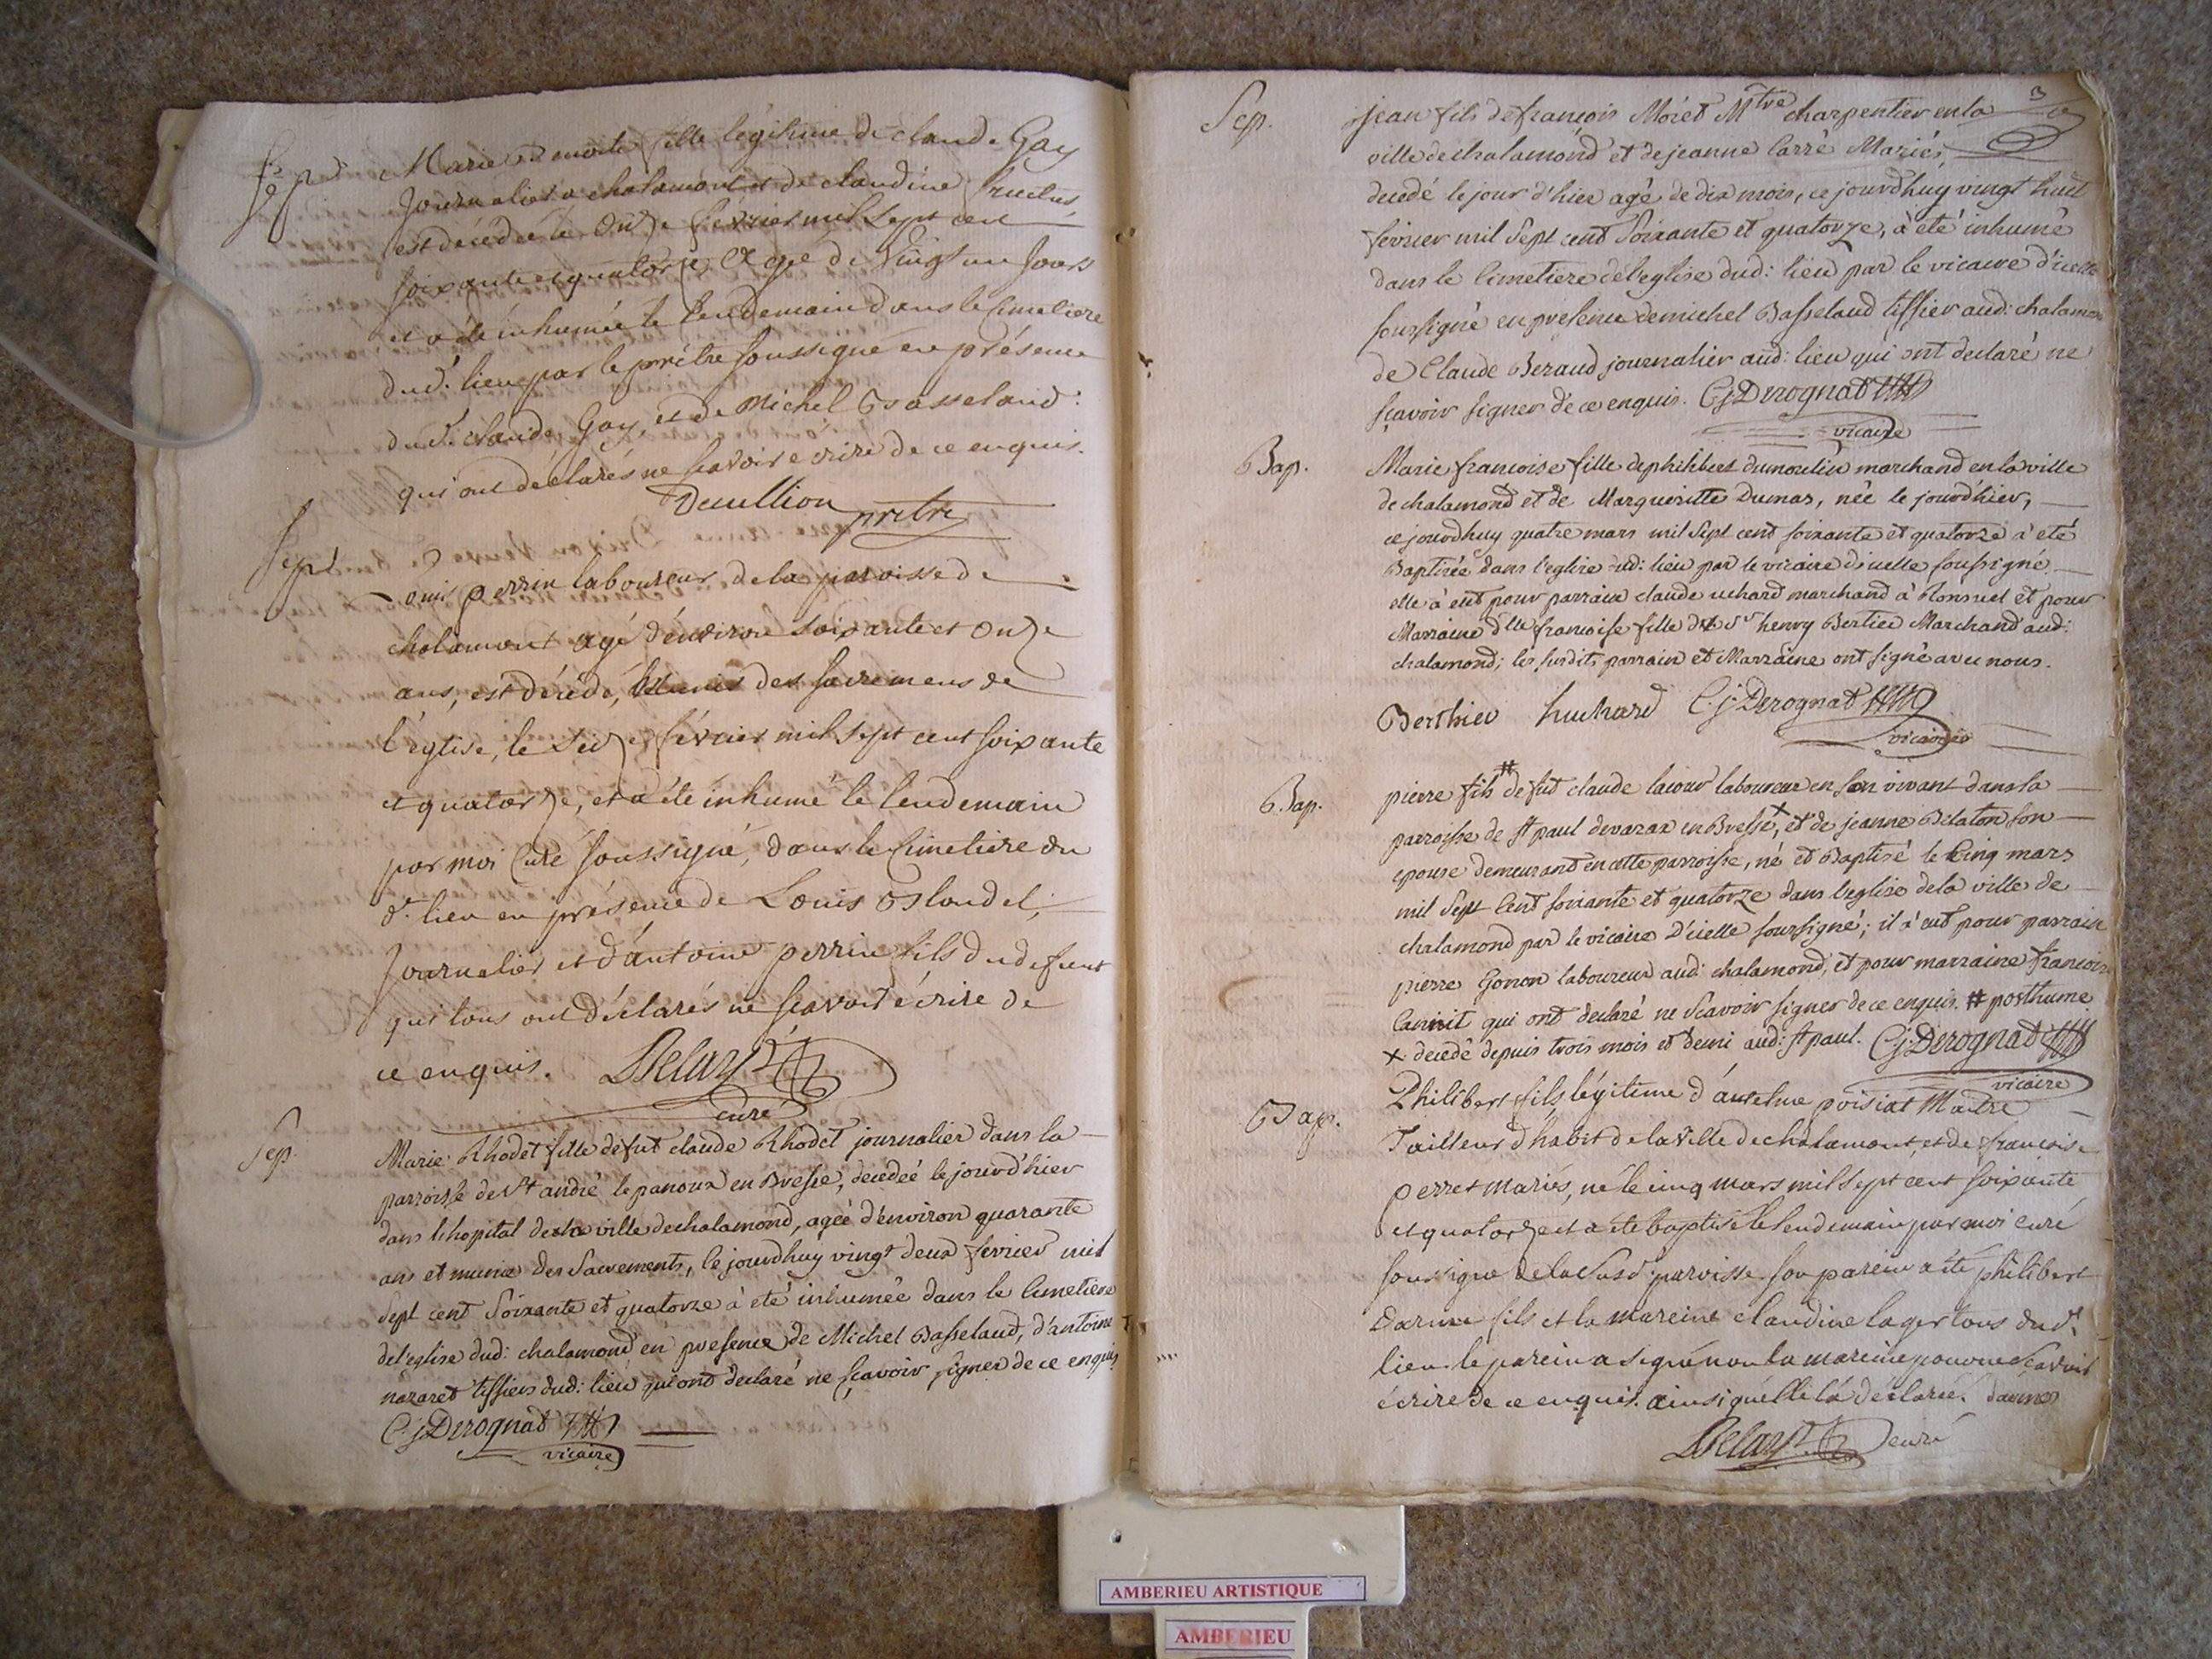 Sep.
Marie Benoite fille légitime de claude Gay
Journalier a chalamont et de claudine
est décédée le Onze fevrier mil sept cent
soixante et quatorze, Agé de Vingt un Jours
et a été inhumée le lendemain dans le Cimetiere
dud: lieu par le prêtre soussigné en présence
dud: claude Gay et de Michel Basseland:
qui ont déclarés ne scavoir écrire de ce enquis.
pretre
Sept
perrin laboureur de la paroisse de
chalamont agé d'environ soixante et Onze
ans, est décédé, Munis des sacremens de
l'église, le Seize février mil sept cent soixante
et quatorze, et a été inhumé le lendemain
par moi Curé soussigné, dans le Cimetiere du
d: lieu en présence de Louis Blondel,
Journalier et d'antoine perrin fils du defunt
qui tous ont déclarés ne scavoir écrire de
ce enquis.
curé
Sep.
Marie Rhodet fille de fut claude Rhodet journalier dans la
parroisse de St andré le panoux en Bresse, decedeé le jourd'hier
dans l'hopital de la ville de chalamond, agéé d'environ quarante
ans et munie des Sacrements, le jourdhuy vingt deux fevrier mil
Sept cent Soixante et quatorze à eté inhumée dans le Cimetiere
de l'eglise dud: chalamond en presence de Michel Basseland, d'antoine
nazaret tissiers dud: lieu qui ont declaré ne sçavoir signer de ce enquis
C j Derognat
vicaire
3
Sep.
jean fils de françois Moret Mtre charpentier en la
ville de chalamond et de jeanne Carré Mariés,
decedé le jour d'hier agé de dix mois, ce jourdhuy vingt huit
fevrier mil Sept cent Soixante et quatorze, à eté inhumé
dans le Cimetiere de l'eglise dud: lieu par le vicaire d'icelle
soussigné en presence de michel Basseland tissier aud: chalamon
de Claude Beraud journalier aud: lieu qui ont declaré ne
sçavoir signer de ce enquis. C j Derognat
vicaire
Bap.
Marie francoise fille de philibert dumoulin marchand en la ville
de chalamond et de Margueritte Dumas, née le jourd'hier,
ce jourdhuy quatre mars mil Sept cent soixante et quatorze à eté
Baptisée dans l'eglise dud: lieu par le vicaire d'icelle soussigné
elle à eut pour parrain claude uchard marchand à et pour
Marraine dlle francoise fille de Sr henry Bertier Marchand aud:
chalamond; les susdits parrain et Marraine ont signé avec nous.
Berthier huchard C. j. Derognat
vicaire
Bap.
pierre fils # de fut claude lacour laboureur en son vivant dans la
parroisse de St paul de varax en Bresse x, et de jeanne Belaton son
epouse demeurant en cette parroisse, né et Baptisé le Cinq mars
mil Sept Cent soixante et quatorze dans l'eglise de la ville de
chalamond par le vicaire D'icelle soussigné; il à eut pour parrain
pierre Gonon laboureur aud: chalamond, et pour marraine francoise
qui ont declaré ne Scavoir signer de ce enquis. # posthume
x decedé depuis trois mois et demi aud: St paul. C j Derognat
vicaire
Bap.
Philibert fils légitime d'anselme poisiat Maitre
Tailleur d'habit de la Ville de chalamont, et de francoise
perret mariés, né le cinq mars mil sept cent soixante
et quatorze et a été baptisé le lendemain par moi curé
soussigné de la Susd: paroisse. son parein a été philibert
Darme fils et la mareine claudine lager tous dud:
lieu. le parein a signé non la mareine pour ne scavoir
écrire de ce enquis. ainsi qu'elle l'a déclaré. darme
curé
AMBERIEU ARTISTIQUE
AMBERIEU